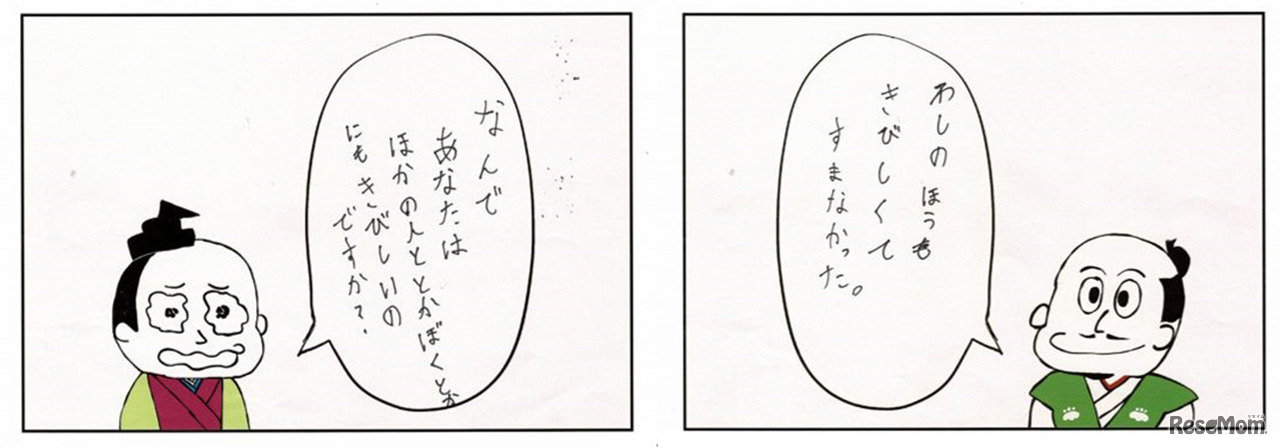 なんで
あなたは
ほかの人ととかぼくとか
にもきびしいの
ですか?
わしのほうも
きびしくて
すまなかった。
リセマム
ReseMom